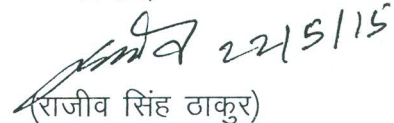 22/5/15
(राजीव सिंह ठाकुर)